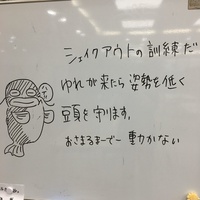 シェイクアウトの訓練だ
ゆれが来たら姿勢を低く
頭を守ります。
おさまるまーでー動かない